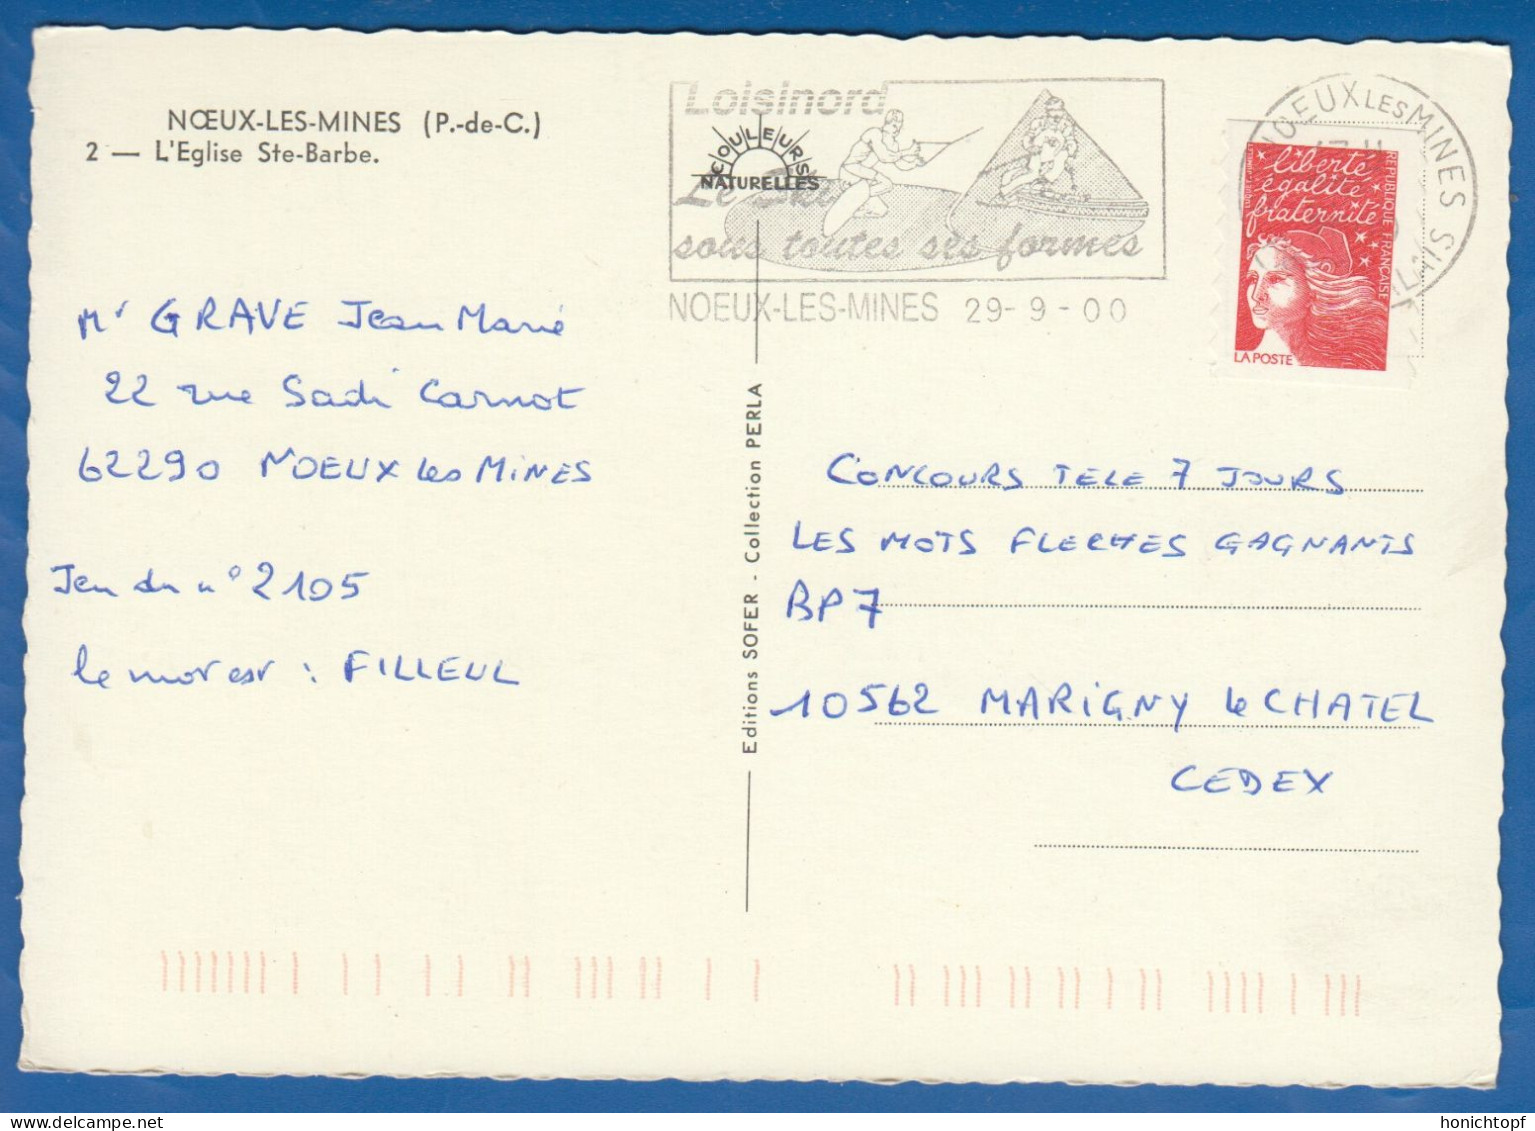 NŒUX-LES-MINES (P.-de-C.)
2 — L'Eglise Ste-Barbe.
Loisinord
COULEURS
NATURELLES
Le Ski
sous toutes ses formes
NOEUX-LES-MINES 29-9-00
NOEUX LES MINES
liberté
égalité
fraternité
RÉPUBLIQUE FRANÇAISE
LA POSTE
Mr GRAVE Jean Marie
22 rue Sadi Carnot
62290 NOEUX les MINES
Jeu du n° 2105
le mot est : FILLEUL
Editions SOFER - Collection PERLA
CONCOURS TELE 7 JOURS
LES MOTS FLECHES GAGNANTS
BP7
10562 MARIGNY le CHATEL
CEDEX
honichtopf